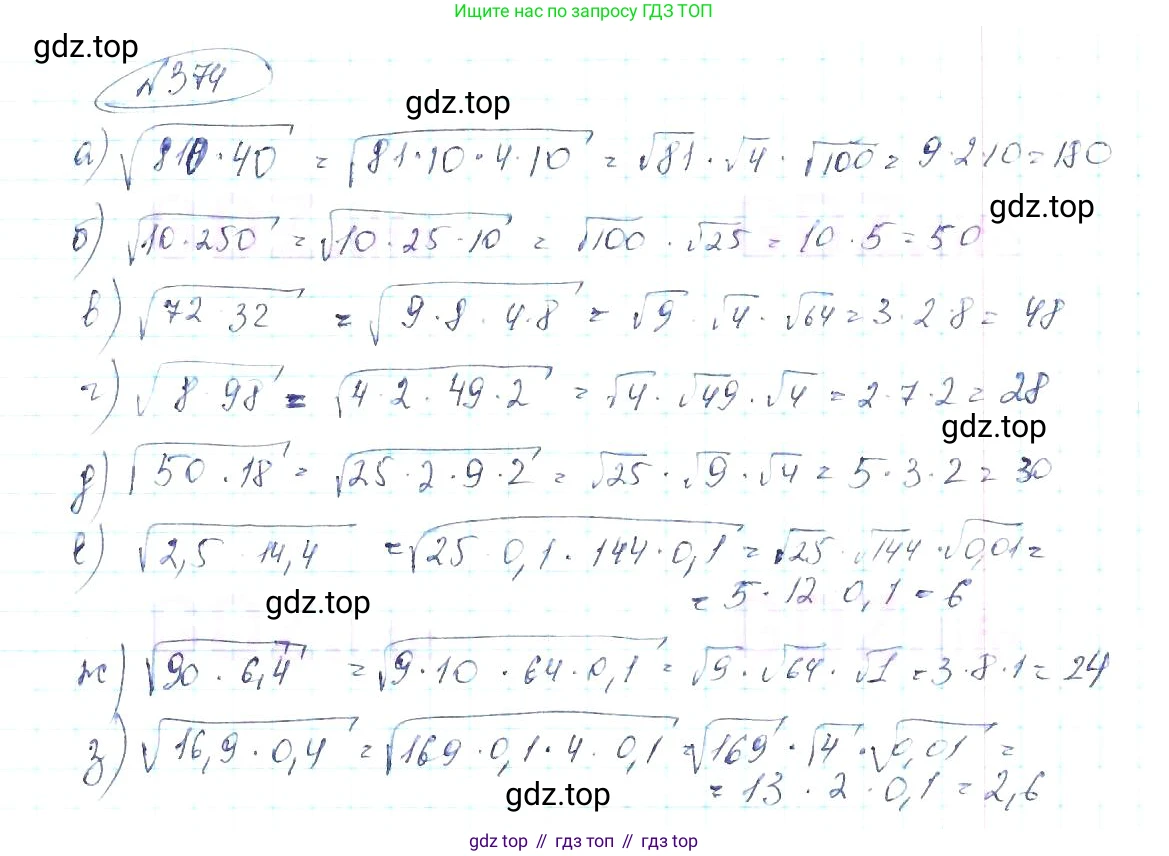 Ищите нас по запросу ГДЗ ТОП
gdz.top
№374
gdz.top
а) √(810·40) = √(81·10·4·10) = √81·√4·√100 = 9·2·10=180
gdz.top
б) √(10·250) = √(10·25·10) = √100·√25 = 10·5=50
в) √(72 32) = √(9·8·4·8) = √9·√4·√64=3·2·8= 48
г) √(8 98) = √(4·2·49·2) = √4·√49·√4 = 2·7·2=28
gdz.top
д) √(50·18) = √(25·2·9·2) = √25·√9·√4 = 5·3·2=30
е) √(2,5 14,4) =√(25 0,1·144·0,1) = √25·√144·√0,01=
gdz.top
= 5·12 0,1=6
ж) √(90·6,4) =√(9·10·64·0,1) = √9·√64·√1=3·8·1=24
з) √(16,9·0,4) =√(169·0,1·4·0,1) =√169·√4·√0,01 =
gdz.top
= 13·2·0,1=2,6
gdz top // гдз топ // gdz top